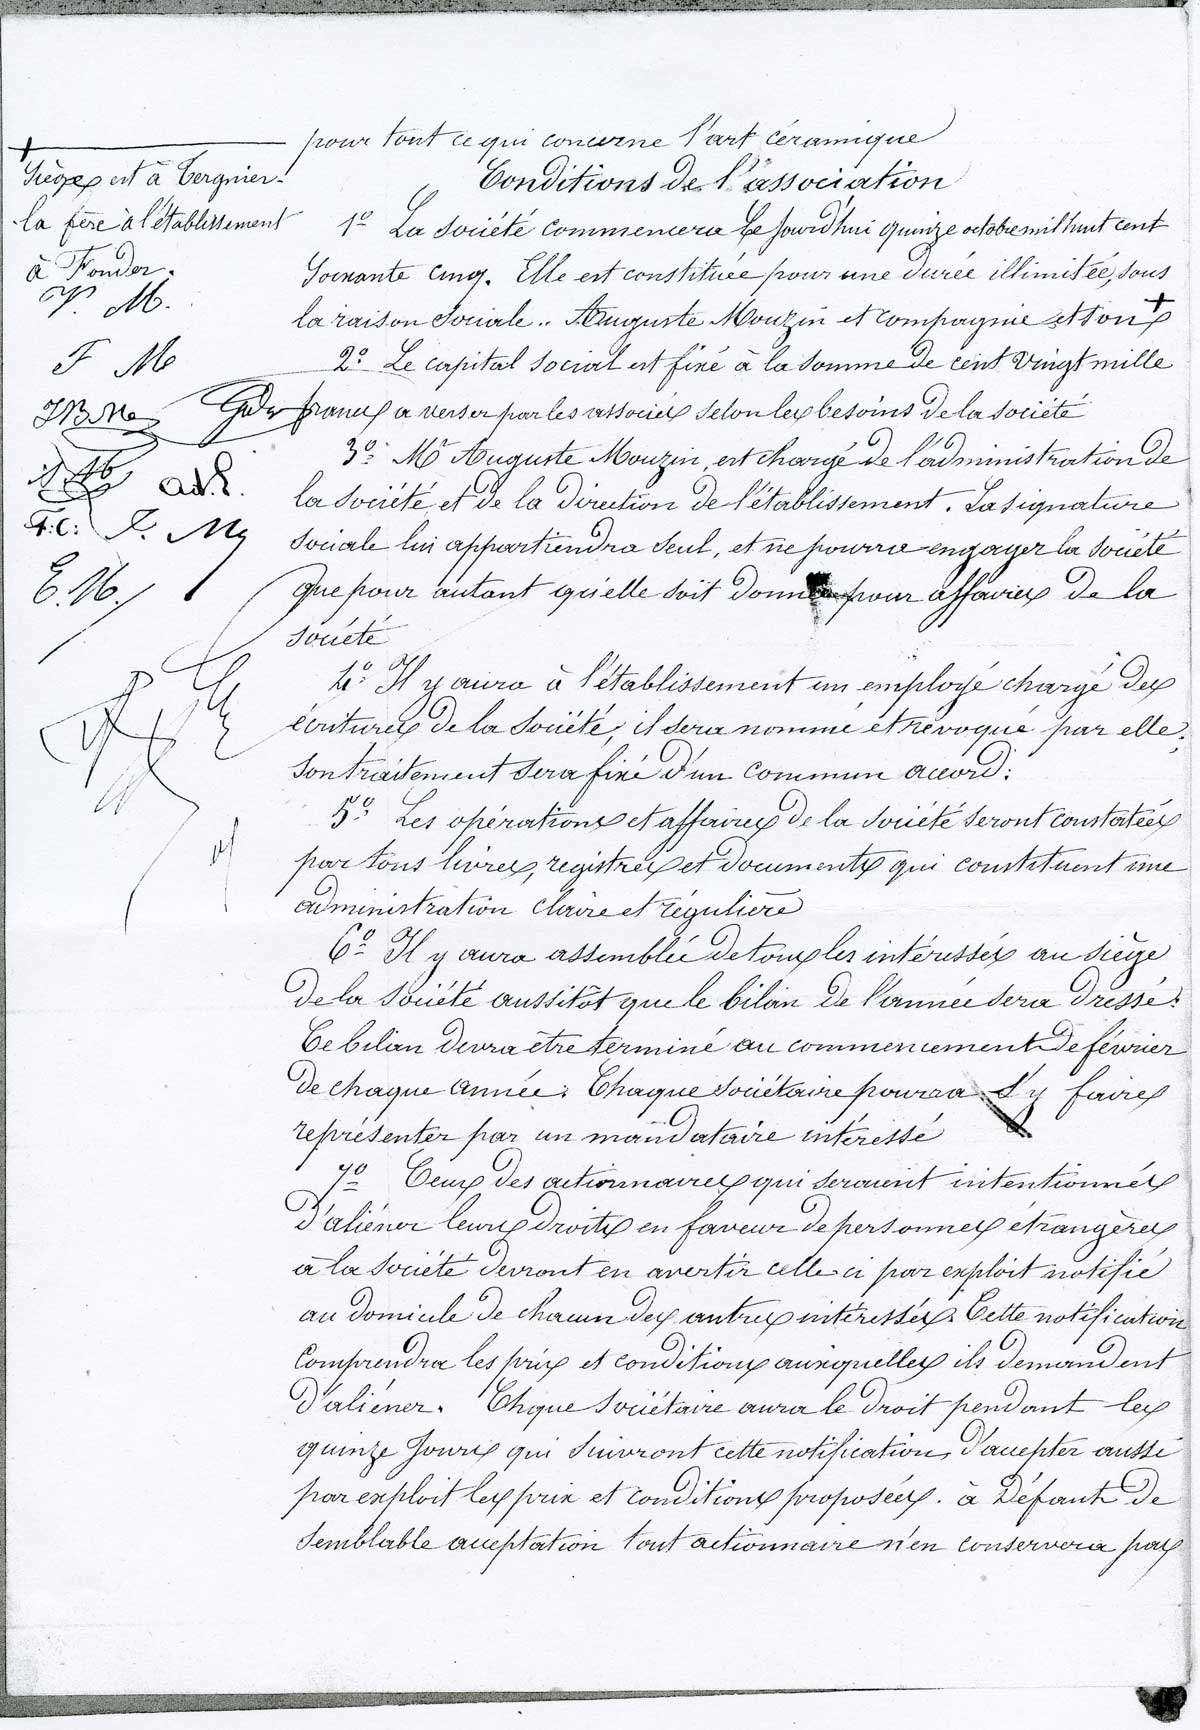 pour tout ce qui concerne l'art céramique
Conditions de l'association
1º La société commencera ce jourd'hui quinze octobre mil huit cent
soixante cinq. Elle est constituée pour une durée illimitée, sous
la raison sociale .. Auguste Mouzin et compagnie et son +
2º Le capital social est fixé à la somme de cent vingt mille
francs a verser par les associés selon les besoins de la société
3º Mr Auguste Mouzin, est chargé de l'administration de
la société et de la direction de l'établissement. La signature
sociale lui appartiendra seul, et ne pourra engager la société
que pour autant qu'elle soit donnée pour affaires de la
société
4º Il y aura à l'établissement un employé chargé des
écritures de la société, il sera nommé et révoqué par elle,
son traitement sera fixé d'un commun accord.
5º Les opérations et affaires de la société seront constatées
par tous livres, registres et documents qui constituent une
administration claire et régulière
6º Il y aura assemblée de tous les intéressés au siège
de la société aussitôt que le bilan de l'année sera dressé.
Ce bilan devra être terminé au commencement de février
de chaque année. Chaque sociétaire pourra s'y faire
représenter par un mandataire intéressé
7º Ceux des actionnaires qui seraient intentionnés
d'aliéner leurs droits en faveur de personnes étrangères
à la société devront en avertir celle ci par exploit notifié
au domicile de chacun des autres intéressés. Cette notification
comprendra les prix et conditions auxquelles ils demandent
d'aliéner. Chque sociétaire aura le droit pendant les
quinze jours qui suivront cette notification, d'accepter aussi
par exploit les prix et conditions proposées. à Défaut de
semblable acceptation tout actionnaire n'en conservera pas
+
siège est à Tergnier-
la fère à l'établissement
à Fonder.
V. M.
F M
JBM
ad.L.
F.C. J. M
E. M.